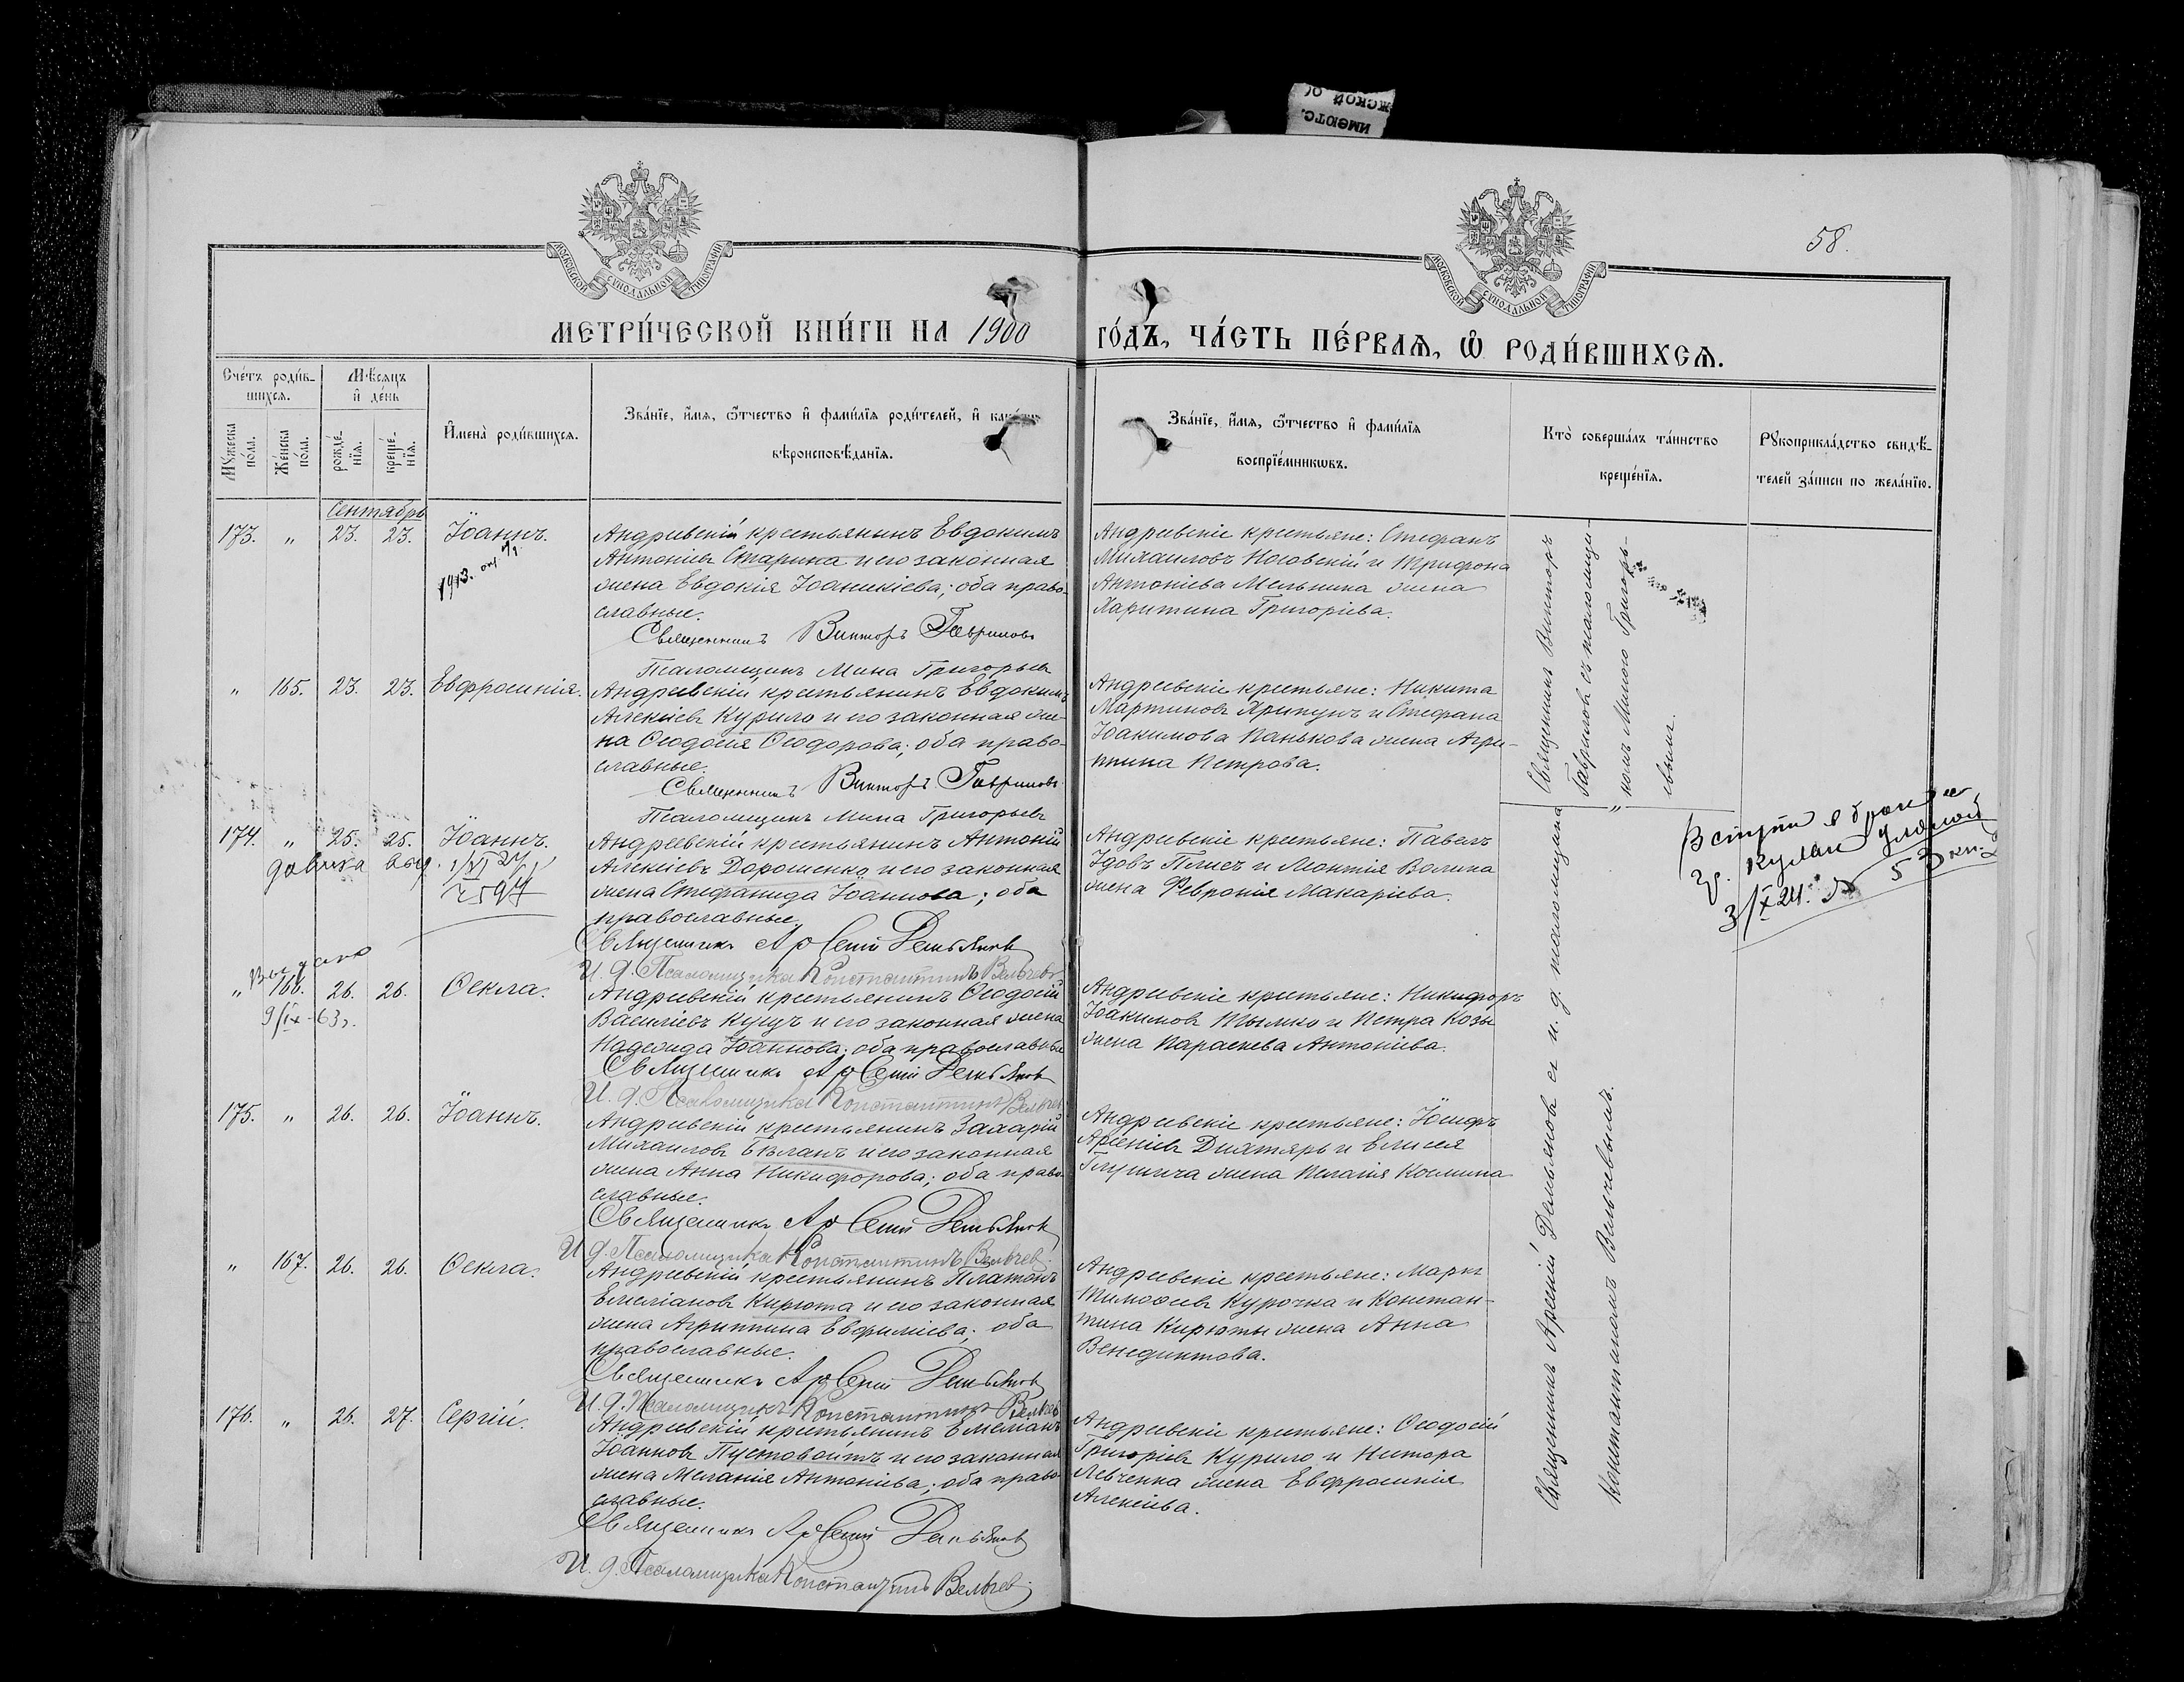 58.
МОСКОВСКОЙ СѴНОДАЛЬНОЙ ТИПОГРАФІИ
МОСКОВСКОЙ СѴНОДАЛЬНОЙ ТИПОГРАФІИ
МЕТРИ́ЧЕСКОЙ КНИ́ГИ НА 1900 ГО́ДЪ, ЧА́СТЬ ПЕ́РВАѦ, Ѡ РОДИ́ВШИХСѦ.
Сче́тъ роди́в-
шихсѧ.
Мꙋжеска по́ла.
Же́нска по́ла.
Мѣ́сѧцъ и де́нь
рожде́-
нїѧ.
креще́-
нїѧ.
И҆мена̀ роди́вшихсѧ.
Зва́нїе, и҆́мѧ, ѻ҆́тчество и҆ фами́лїѧ роди́телей, и҆
вѣроисповѣ́данїѧ.
Зва́нїе, и҆́мѧ, ѻ҆́тчество и҆ фами́лїѧ
воспрїе́мникѡвъ.
Кто̀ соверша́лъ та́инство
креще́нїѧ.
Рꙋкоприкла́дство свидѣ́-
телей за́писи по жела́нїю.
Сентябрь
173. „ 23. 23. Іоаннъ.
1913. окт.
Андреевскій крестьянинъ Евдокимъ
Антоніевъ Старика и его законная
жена Евдокія Іоаникіева; оба право-
славные.
Священникъ Викторъ Гавриловъ
Псаломщикъ Мина Григорьевъ
Андреевскіе крестьяне: Стефанъ
Михаиловъ Носовскій и Трифона
Антоніева Мельника жена
Харитина Григоріева.
„ 165. 23. 23. Евфросинія.
Андреевскій крестьянинъ Евдокимъ
Алексіевъ Курило и его законная же-
на Ѳеодосія Ѳеодорова; оба право-
славные.
Священникъ Викторъ Гавриловъ
Псаломщикъ Мина Григорьевъ
Андреевскіе крестьяне: Никита
Мартиновъ Хрипунъ и Стефана
Іоакимова Панькова жена Агри-
пина Петрова.
Священникъ Викторъ
Гавриловъ съ псаломщи-
комъ Миною Григорь-
евымъ.
174. „ 25. 25. Іоаннъ.
Андреевскій крестьянинъ Антоній
Алексіевъ Дорошенко и его законная
жена Стефанида Іоаннова; оба
православные.
Священникъ Арсеній Демьяновъ
И. д. Псаломщика Константинъ Вельчевъ
Андреевскіе крестьяне: Павелъ
Плисъ и Леонтія Волика
жена Февронія Макаріева.
3/IX 24. 53 кн. 2
Выдана
9/IX-63 г.
„ 166. 26. 26. Ѳекла.
Андреевскій крестьянинъ Ѳеодосій
Василіевъ Куцъ и его законная жена
Надежда Іоаннова; оба православные
Священникъ Арсеній Демьяновъ
И. д. Псаломщика Константинъ Вельчевъ
Андреевскіе крестьяне: Никифоръ
Іоакимовъ Тымко и Петра Козы
жена Параскева Антоніева.
175. „ 26. 26. Іоаннъ.
Андреевскій крестьянинъ Захарій
Михаиловъ Бѣланъ и его законная
жена Анна Никифорова; оба право-
славные.
Священникъ Арсеній Демьяновъ
И. д. Псаломщика Константинъ Вельчевъ
Андреевскіе крестьяне: Іосифъ
Арсеніевъ Дихтярь и Елисея
жена Пелагія Космина
„ 167. 26. 26. Ѳекла.
Андреевскій крестьянинъ Платонъ
Емеліановъ Кирюта и его законная
жена Агриппина Евфиміева; оба
православные.
Священникъ Арсеній Демьяновъ
И. д. Псаломщикъ Константинъ Вельчевъ
Андреевскіе крестьяне: Маркъ
Тимоѳеевъ Курочка и Констан-
тина Кирюты жена Анна
Венедиктова.
176. „ 26. 27. Сергій.
Андреевскій крестьянинъ Емеліанъ
Іоанновъ Пустовойтъ и его законная
жена Меланія Антоніева; оба право-
славные.
Священникъ Арсеній Демьяновъ
И. д. Псаломщика Константинъ Вельчевъ
Андреевскіе крестьяне: Ѳеодосій
Григоріевъ Курило и Нестора
Левченка жена Евфросинія
Алексіева.
Священникъ Арсеній Демьяновъ съ и. д. псаломщика
Константиномъ Вельчевымъ.